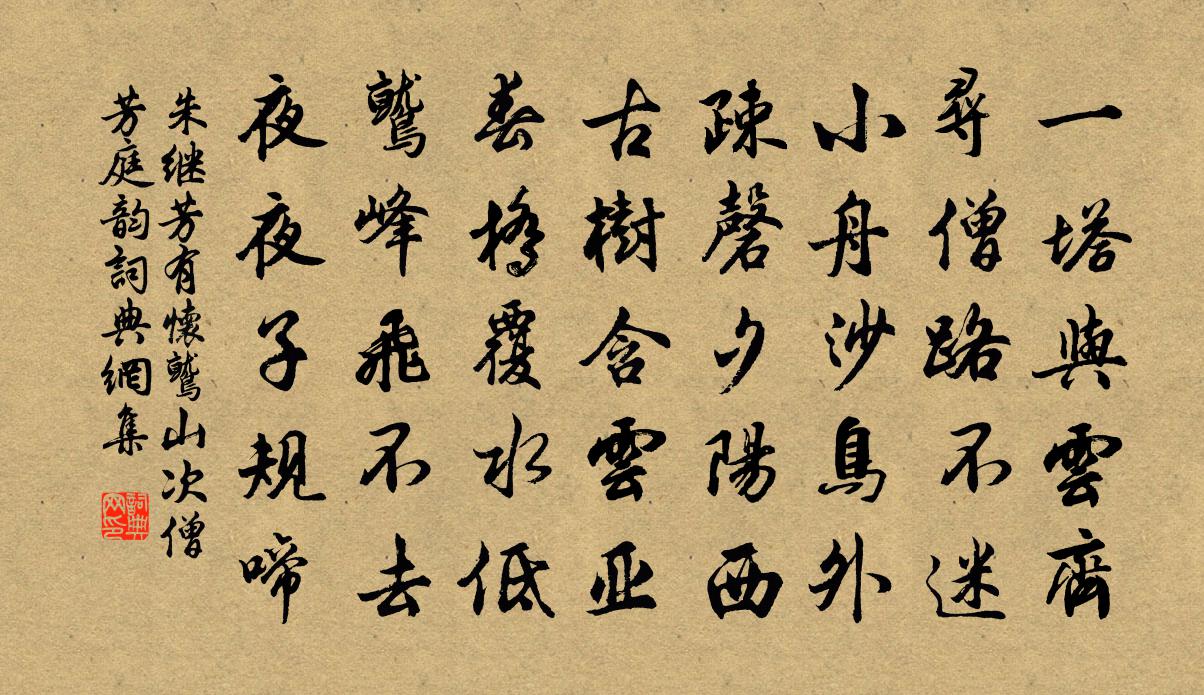 一塔與雲齊
尋僧路不迷
小舟沙鳥外
疎磬夕陽西
古樹含雲亚
春橋覆水低
鷲峰飛不去
夜夜子規啼
朱继芳有懷鷲山次僧
芳庭韵詞典網集
詞典网印